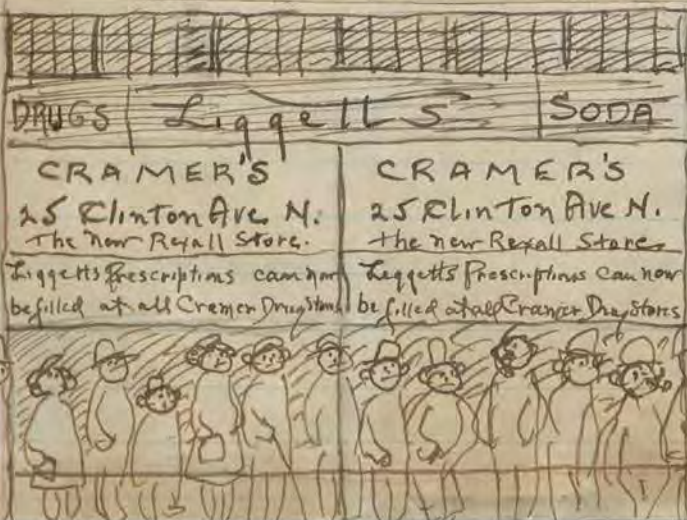 DRUGS Liggetts SODA
CRAMER'S
25 Clinton Ave. N.
The new Rexall Store.
Liggetts Prescriptions can now
be filled at all Cramer Drug Stores
CRAMER'S
25 Clinton Ave N.
the new Rexall Store.
Leggetts Prescriptions can now
be filled at all Cramer Drug Stores